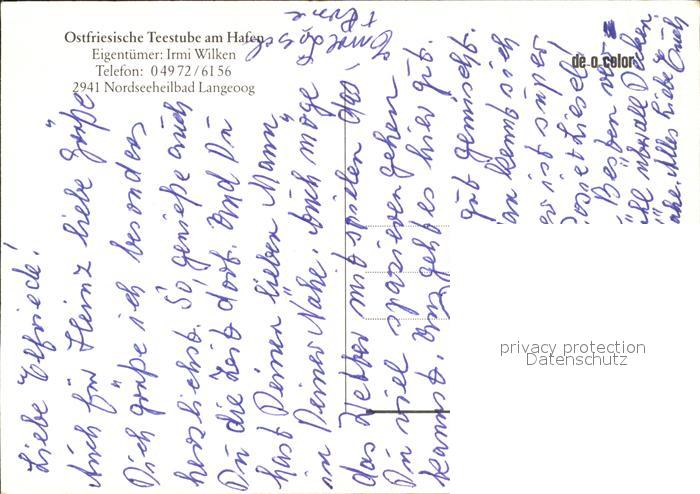 Ostfriesische Teestube am Hafen
Eigentümer: Irmi Wilken
Telefon: 0 49 72 / 61 56
2941 Nordseeheilbad Langeoog
de-o-color
Liebe Elfriede!
Auch für Heinz liebe Grüße
Dich grüße ich besonders
herzlichst. So genieße auch
Du die Zeit dort. Und Du
hast Deinen lieben Mann
in Deiner Nähe. Auch möge
das Wetter mitspielen das
Du viel spazieren gehen
kannst. Uns geht es hier gut.
gut gemischt.
kennt sich
ist super
Besten
überall
Alles Liebe Euch
privacy protection
Datenschutz